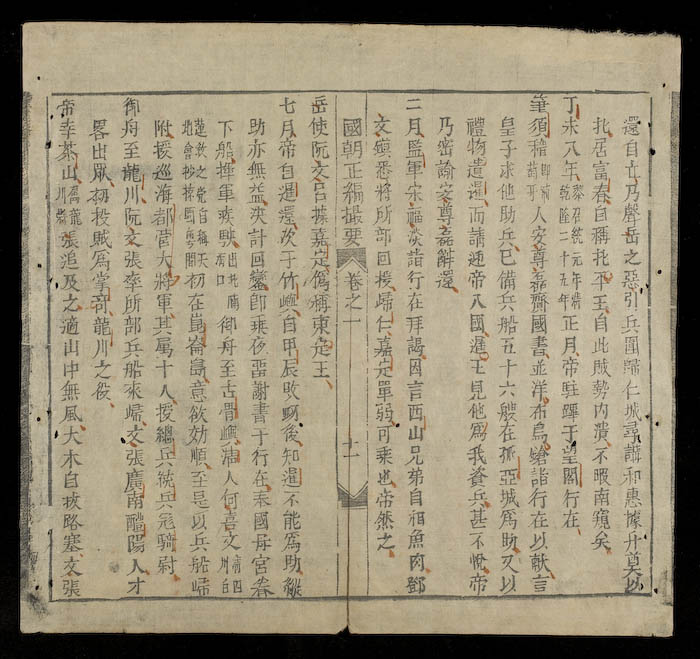 還自立乃聲岳之惡引兵圍歸仁城尋講和惠據升奠以
北居富春自稱北平王自此賊勢内潰不暇南窺矣
丁未八年黎昭統元年清乾隆二十五年正月帝駐蹕于望閣行在
筆須稽即前萄牙人安尊磊齎國書並洋布鳥鎗詣行在以獻言
皇子求他助兵已備兵船五十六艘在孤亞城爲助又以
禮物遺暹而請迎帝入國暹王見他爲我資兵甚不愜帝
乃密諭安尊磊辭還
二月監軍宋福淡詣行在拜謁因言西山兄弟自相魚肉鄧
文鎮悉將所部回援歸仁嘉定單弱可乘也帝然之
國朝正編撮要 卷之一 十一
岳使阮文呂據嘉定僞稱東定王
七月帝自暹還次于竹嶼自甲辰敗衂後知暹不能爲助縱
助亦無益决計回鑾卽乘夜留謝書于行在奉國母宮眷
下船揮軍疾映出北南有口御舟至古骨嶼清人何喜文清四川白
蓮教之党自稱天地會抄掠閩粤間初在崑崙島意欲効順至是以兵船歸
附授巡海都營大將軍其屬十人授總兵統兵飛騎尉
御舟至龍川阮文張率所部兵船來歸文張廣南醴陽人才
畧出衆初投賊爲掌奇龍川之役
帝幸茶山屬龍川縣張追及之適山中無風大木自拔路塞文張